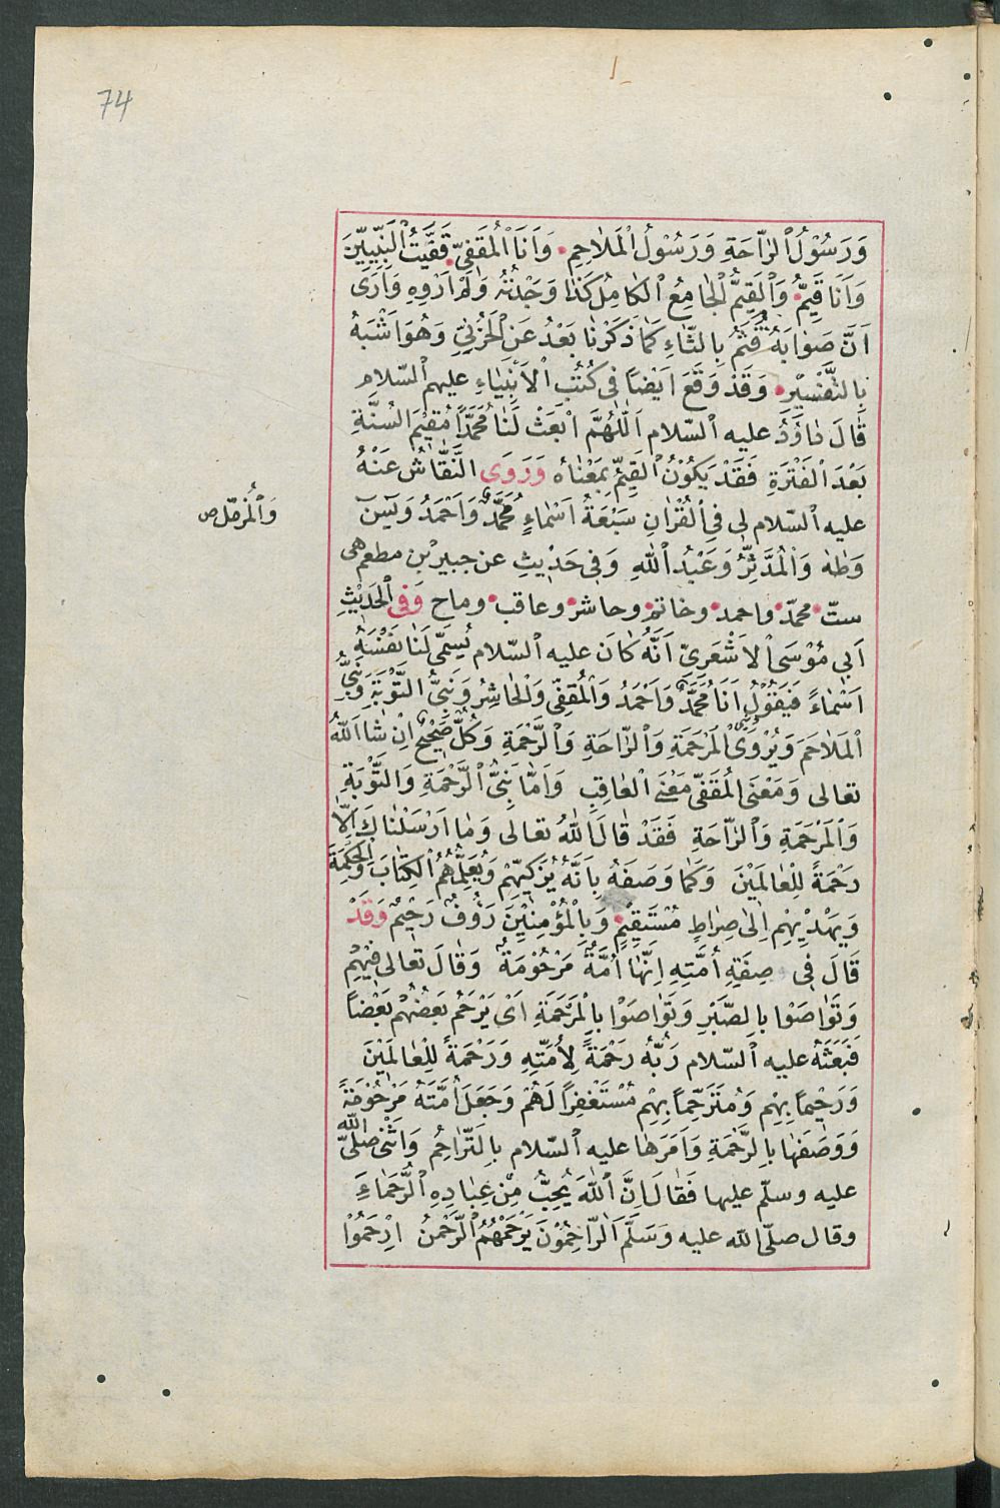 74
وَرَسُوْلُ ٱلرَّاحَةِ وَرَسُوْلُ ٱلْمَلَاحِمِ وَاَنَا ٱلْمُقَفِّيّ قَفَّيْتُ ٱلنَّبِيِّيْنَ
وَاَنَا قَيِّمٌ وَٱلْقَيِّمُ ٱلْجَامِعُ ٱلْكَامِلُ كَذَا وَجَدْتُهُ وَلَمْ اَرْوِهِ وَاَرَى
اَنَّ صَوَابَهُ قُثَمُ بِالثَّاءِ كَمَا ذَكَرْنَا بَعْدُ عَنِ ٱلْحَرْبِيِّ وَهُوَ اَشْبَهُ
بِالتَّفْسِيْرِ وَقَدْ وَقَعَ اَيْضًا فِي كُتُبِ ٱلْاَنْبِيَاءِ عليهم ٱلسّلام
قَالَ دَاؤدُ عليه ٱلسّلام اَللّٰهُمَّ ابْعَثْ لَنَا مُحَمَّدًا مُقِيْمَ السُّنَّةِ
بَعْدَ ٱلْفَتْرَةِ فَقَدْ يَكُوْنُ ٱلْقَيِّمُ بِمَعْنَاهُ وَرَوَى النَّقَّاشُ عَنْهُ
عليه ٱلسّلام لِى فِي ٱلْقُرْاٰنِ سَبْعَةُ اَسْمَاءٍ مُحَمَّدٌ وَاَحْمَدُ وَيٰسٓ
وَٱلْمُزَّمِّل ص
وَطٰهٰ وَٱلْمُدَّثِّرُ وَعَبْدُ ٱللّٰهِ وَفِي حَدِيْثٍ عن جبير بْنِ مطعم هى
ستّ محمّد واحمد وخاتم وحاشر وعاقب وماح وَفِي ٱلْحَدِيْثِ
اَبِي مُوْسَى ٱلْاَشْعَرِيّ اَنَّهُ كَانَ عليه ٱلسّلام يُسَمِّي لَنَا نَفْسَهُ
اَسْمَاءً فَيَقُوْلُ اَنَا مُحَمَّدٌ وَاَحْمَدُ وَٱلْمُقَفِّى وَٱلْحَاشِرُ وَنَبِيُّ التَّوْبَةِ وَنَبِيُّ
ٱلْمَلَاحِمَ وَيُرْوَى ٱلْمَرْحَمَةِ وَٱلرَّاحَةِ وَٱلرَّحْمَةِ وَكُلٌّ صَحِيْحٌ اِنْ شَا اَللّٰهُ
تعالى وَمَعْنَى ٱلْمُقَفِّى مَعْنَى ٱلْعَاقِبِ وَاَمَّا نَبِيُّ ٱلرَّحْمَةِ وَالتَّوْبَةِ
وَٱلْمَرْحَمَةِ وَٱلرَّاحَةِ فَقَدْ قَالَ ٱللّٰهُ تعالى وَمَا اَرْسَلْنَاكَ اِلَّا
رَحْمَةً لِلْعَالَمِيْنَ وَكَمَا وَصَفَهُ بِاَنَّهُ يُزَكِّيْهِمْ وَيُعَلِّمُهُمُ ٱلْكِتَابَ وَٱلْحِكْمَةَ
وَيَهْدِيْهِمْ اِلٰى صِرَاطٍ مُسْتَقِيْمٍ وَبِالْمُؤْمِنِيْنَ رَؤُفٌ رَحِيْمٌ وَقَدْ
قَالَ فِي صِفَةِ اُمَّتِهِ اِنَّهَا اُمَّةٌ مَرْحُوْمَةٌ وَقَالَ تعالى فِيْهِمْ
وَتَوَاصَوْا بِالصَّبْرِ وَتَوَاصَوْا بِالْمَرْحَمَةِ اَىْ يَرْحَمُ بَعْضُهُمْ بَعْضًا
فَبَعَثَهُ عليه ٱلسّلام رَبُّهُ رَحْمَةً لِاُمَّتِهِ وَرَحْمَةً لِلْعَالَمِيْنَ
وَرَحِيْمًا بِهِمْ وَمُتَرَحِّمًا بِهِمْ مُسْتَغْفِرًا لَهُمْ وَجَعَلَ اُمَّتَهُ مَرْحُوْمَةً
وَوَصَفَهَا بِالرَّحْمَةِ وَاَمَرَهَا عليه ٱلسّلام بِالتَّرَاحُمِ وَاَثْنَى صلّى ٱللّٰه
عليه وسلّم عليها فَقَالَ اِنَّ ٱللّٰهَ يُحِبُّ مِنْ عِبَادِهِ ٱلرُّحَمَاءَ
وقال صلّى ٱللّٰه عليه وَسَلَّمَ ٱلرَّاحِمُوْنَ يَرْحَمُهُمُ ٱلرَّحْمٰنُ ارْحَمُوْا